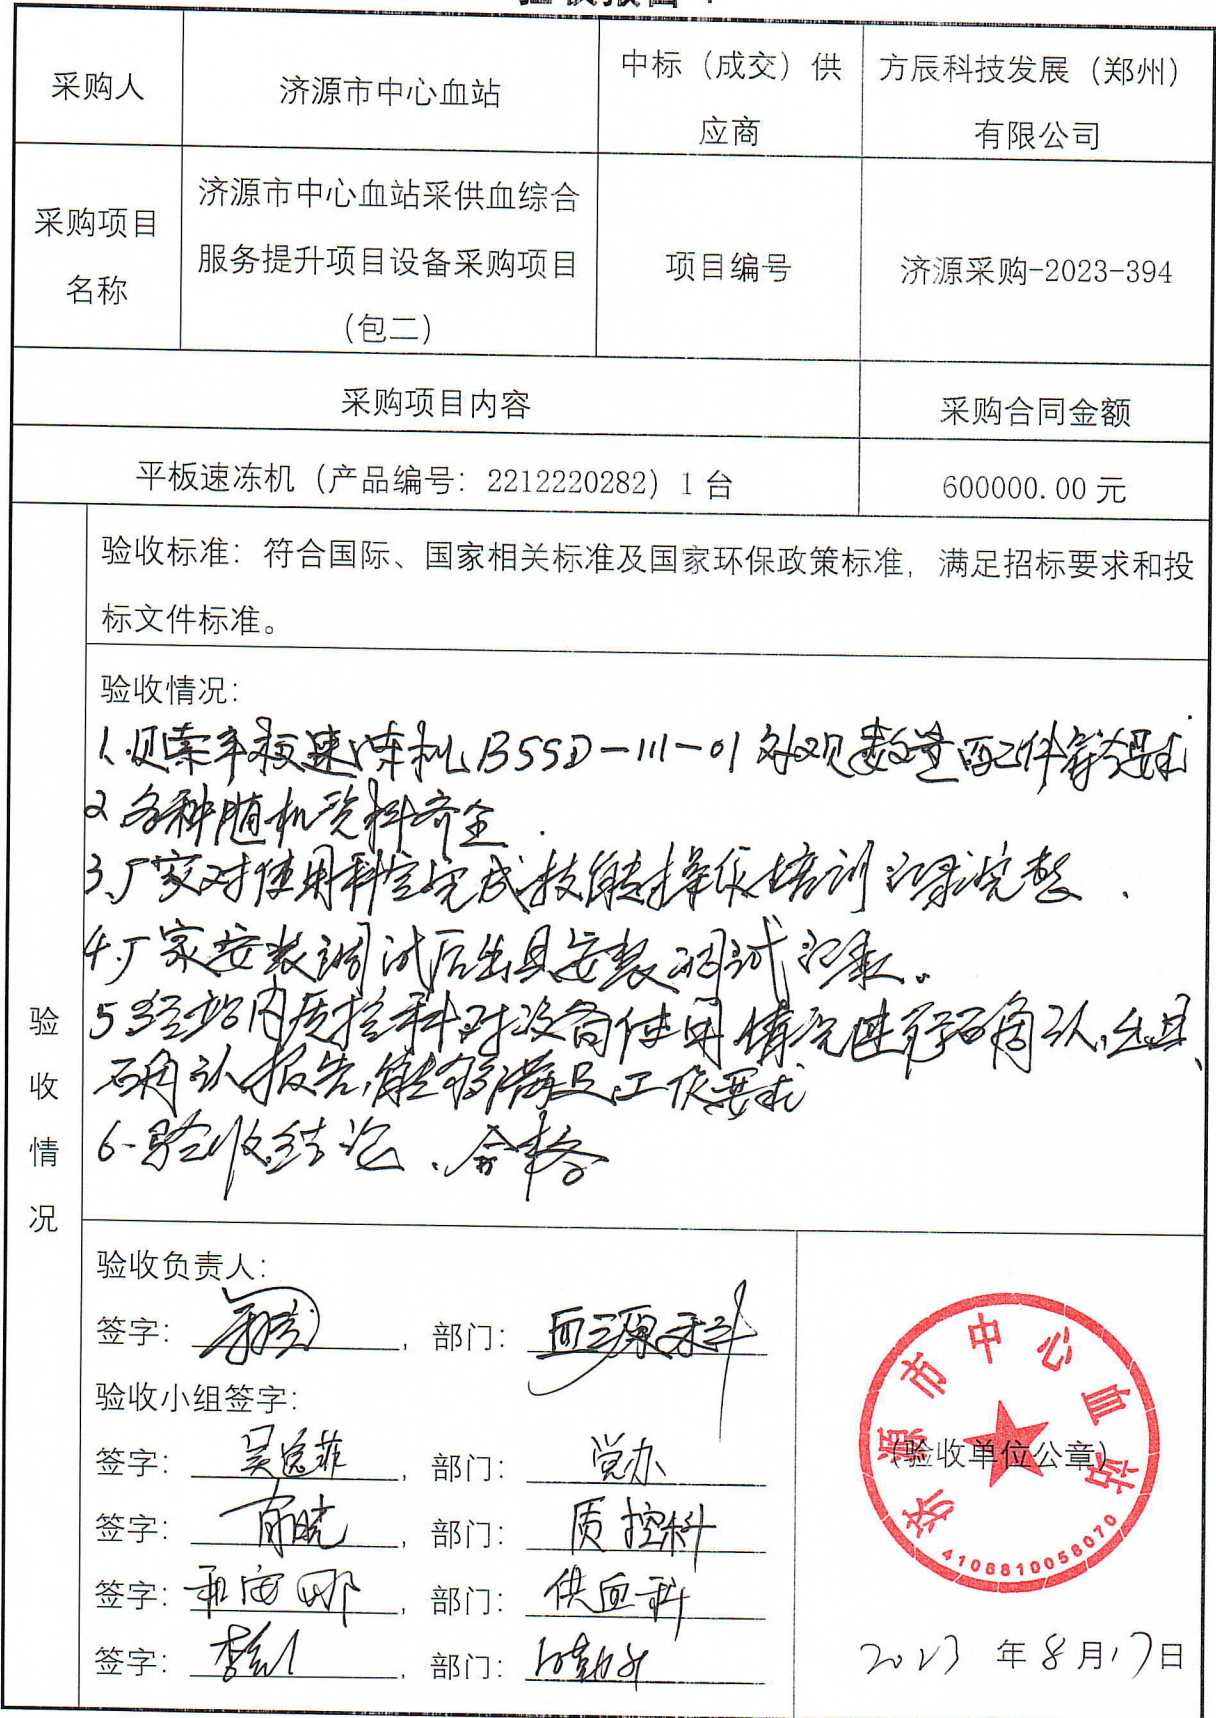 采购人 济源市中心血站 中标（成交）供应商 方辰科技发展（郑州）有限公司
采购项目名称 济源市中心血站采供血综合服务提升项目设备采购项目（包二） 项目编号 济源采购-2023-394
采购项目内容 采购合同金额
平板速冻机（产品编号：2212220282）1台 600000.00元
验收情况
验收标准：符合国际、国家相关标准及国家环保政策标准，满足招标要求和投
标文件标准。
验收情况：
1.贝索平板速冻机BSSD-111-01外观数量配件符合要求
2.各种随机资料齐全.
3.厂家对使用科室完成技能操作培训记录完整.
4.厂家安装调试后出具安装调试记录。
5.经站内质控科对设备使用情况进行确认,出具
确认报告,能够满足工作要求
6.验收结论.合格
验收负责人：
签字： ，部门：血源科
验收小组签字：
签字：吴逸菲，部门：党办
签字： ，部门：质控科
签字： ，部门：供血科
签字： ，部门：
济源市中心血站
（验收单位公章）
4108810058070
2023年8月17日